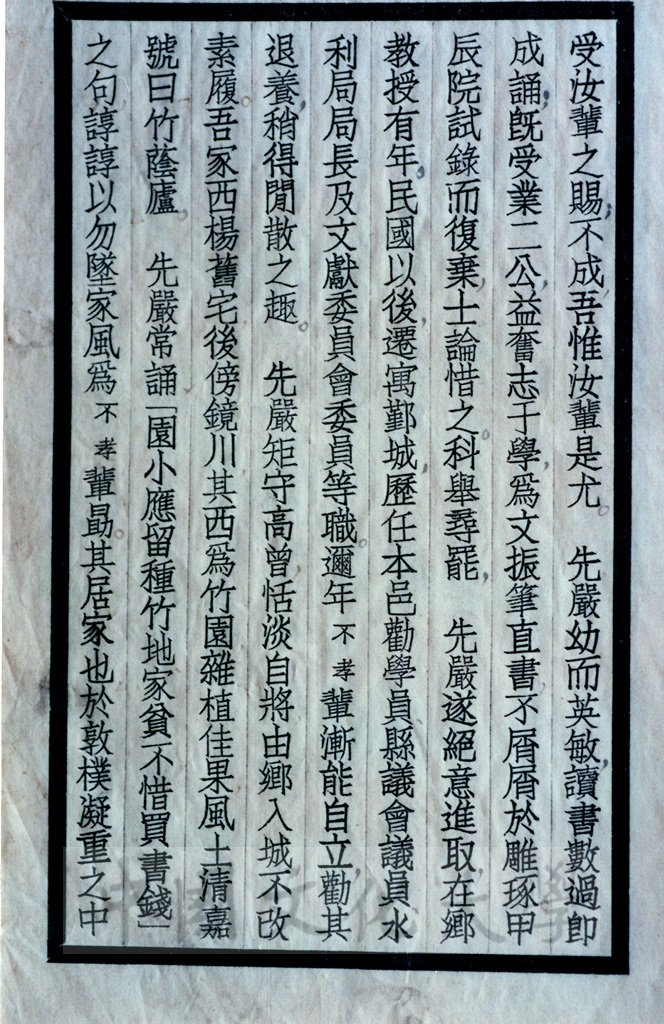 受汝輩之賜不成吾惟汝輩是尤。　先嚴幼而英敏讀書數過卽
成誦旣受業二公益奮志于學爲文振筆直書不屑屑於雕琢甲
辰院試錄而復棄士論惜之科舉尋罷　先嚴遂絕意進取在鄉
教授有年民國以後遷寓鄞城歷任本邑勸學員縣議會議員水
利局局長及文獻委員會委員等職邇年不孝輩漸能自立勸其
退養稍得閒散之趣　先嚴矩守高曾恬淡自將由鄉入城不改
素履吾家西楊舊宅後傍鏡川其西爲竹園雜植佳果風土清嘉
號曰竹蔭廬　先嚴常誦「園小應留種竹地家貧不惜買書錢」
之句諄諄以勿墜家風爲不孝輩勗其居家也於敦樸凝重之中